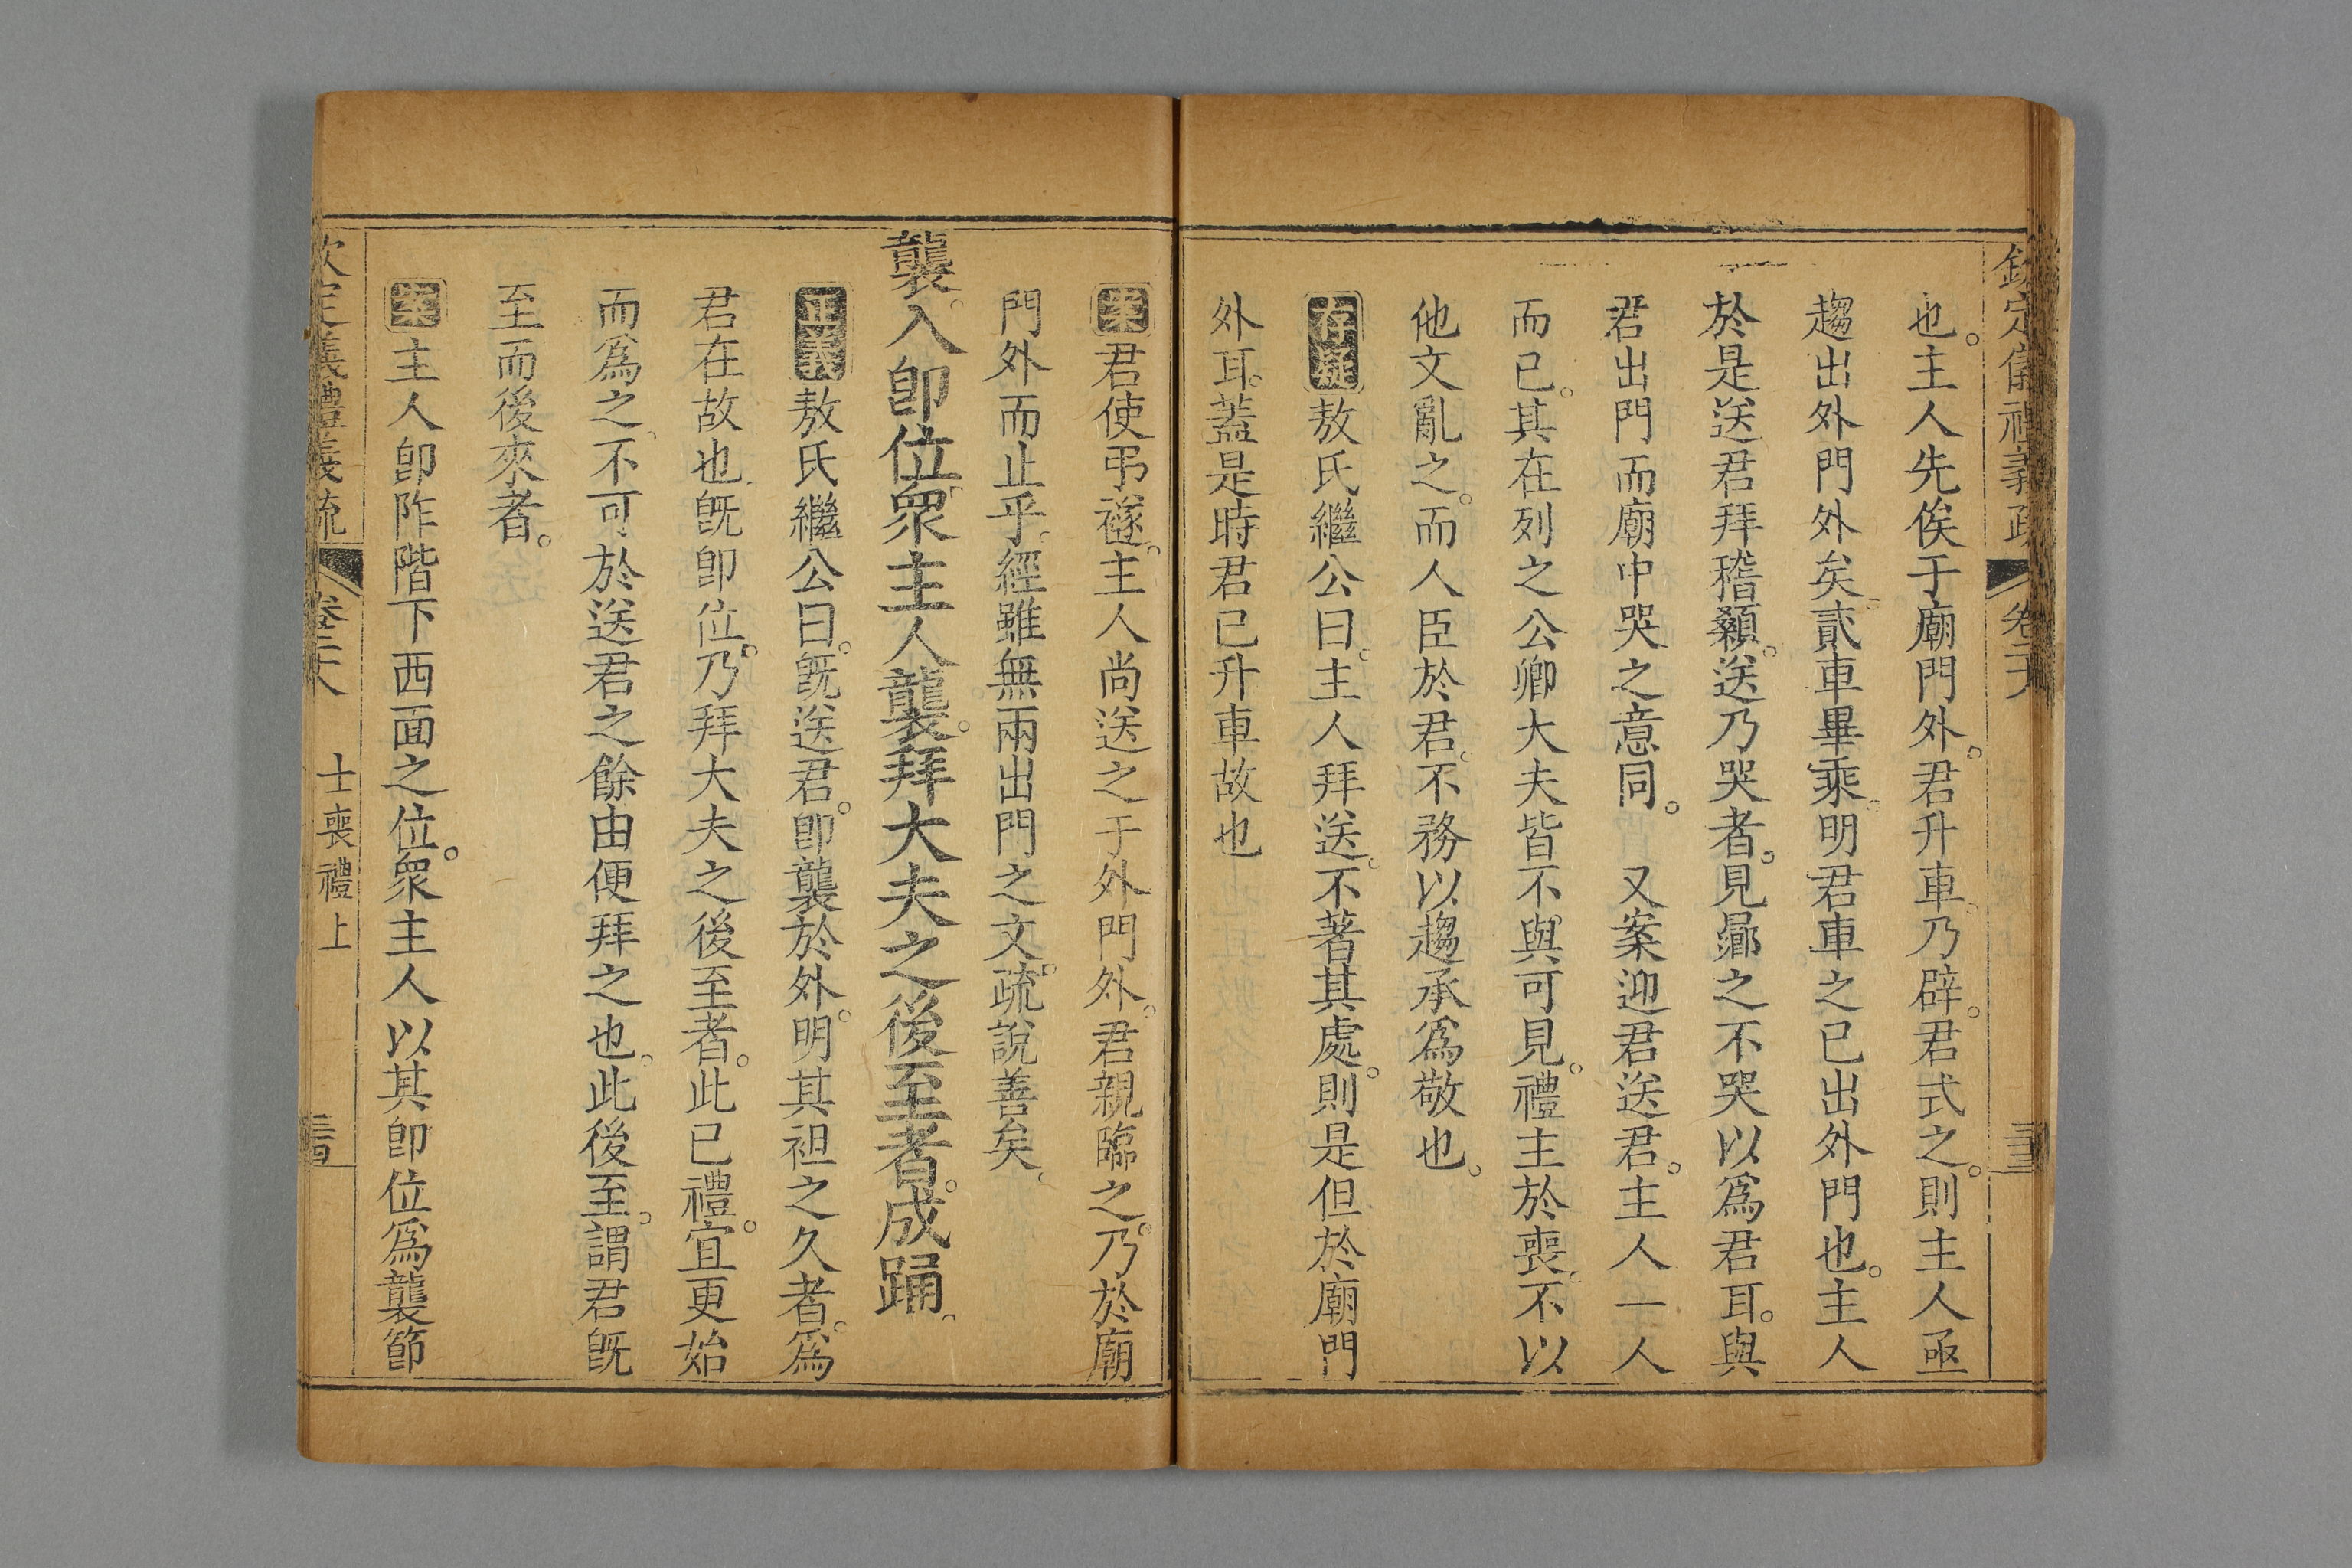 欽定儀禮義疏 卷二十八
也。主人先俟于廟門外。君升車。乃辟。君式之。則主人亟
趨出外門外矣。貳車畢乘。明君車之已出外門也。主人
於是送君拜稽顙。送乃哭者。見曏之不哭以爲君耳。與
君出門而廟中哭之意同。 又案迎君送君。主人一人
而已。其在列之公卿大夫皆不與可見。禮主於喪。不以
他文亂之。而人臣於君。不務以趨承爲敬也。
存疑敖氏繼公曰。主人拜送。不著其處。則是但於廟門
外耳。蓋是時君已升車故也
案君使弔襚。主人尚送之于外門外。君親臨之。乃於廟
門外而止乎。經雖無兩出門之文。疏說善矣。
襲。入卽位。眾主人襲。拜大夫之後至者。成踊。
正義敖氏繼公曰。旣送君。卽襲於外。明其袒之久者。爲
君在故也。旣卽位。乃拜大夫之後至者。此已禮。宜更始
而爲之。不可於送君之餘由便拜之也。此後至。謂君旣
至而後來者。
案主人卽阼階下西面之位。眾主人以其卽位爲襲節
欽定儀禮義疏 卷二十八 士喪禮上 三四